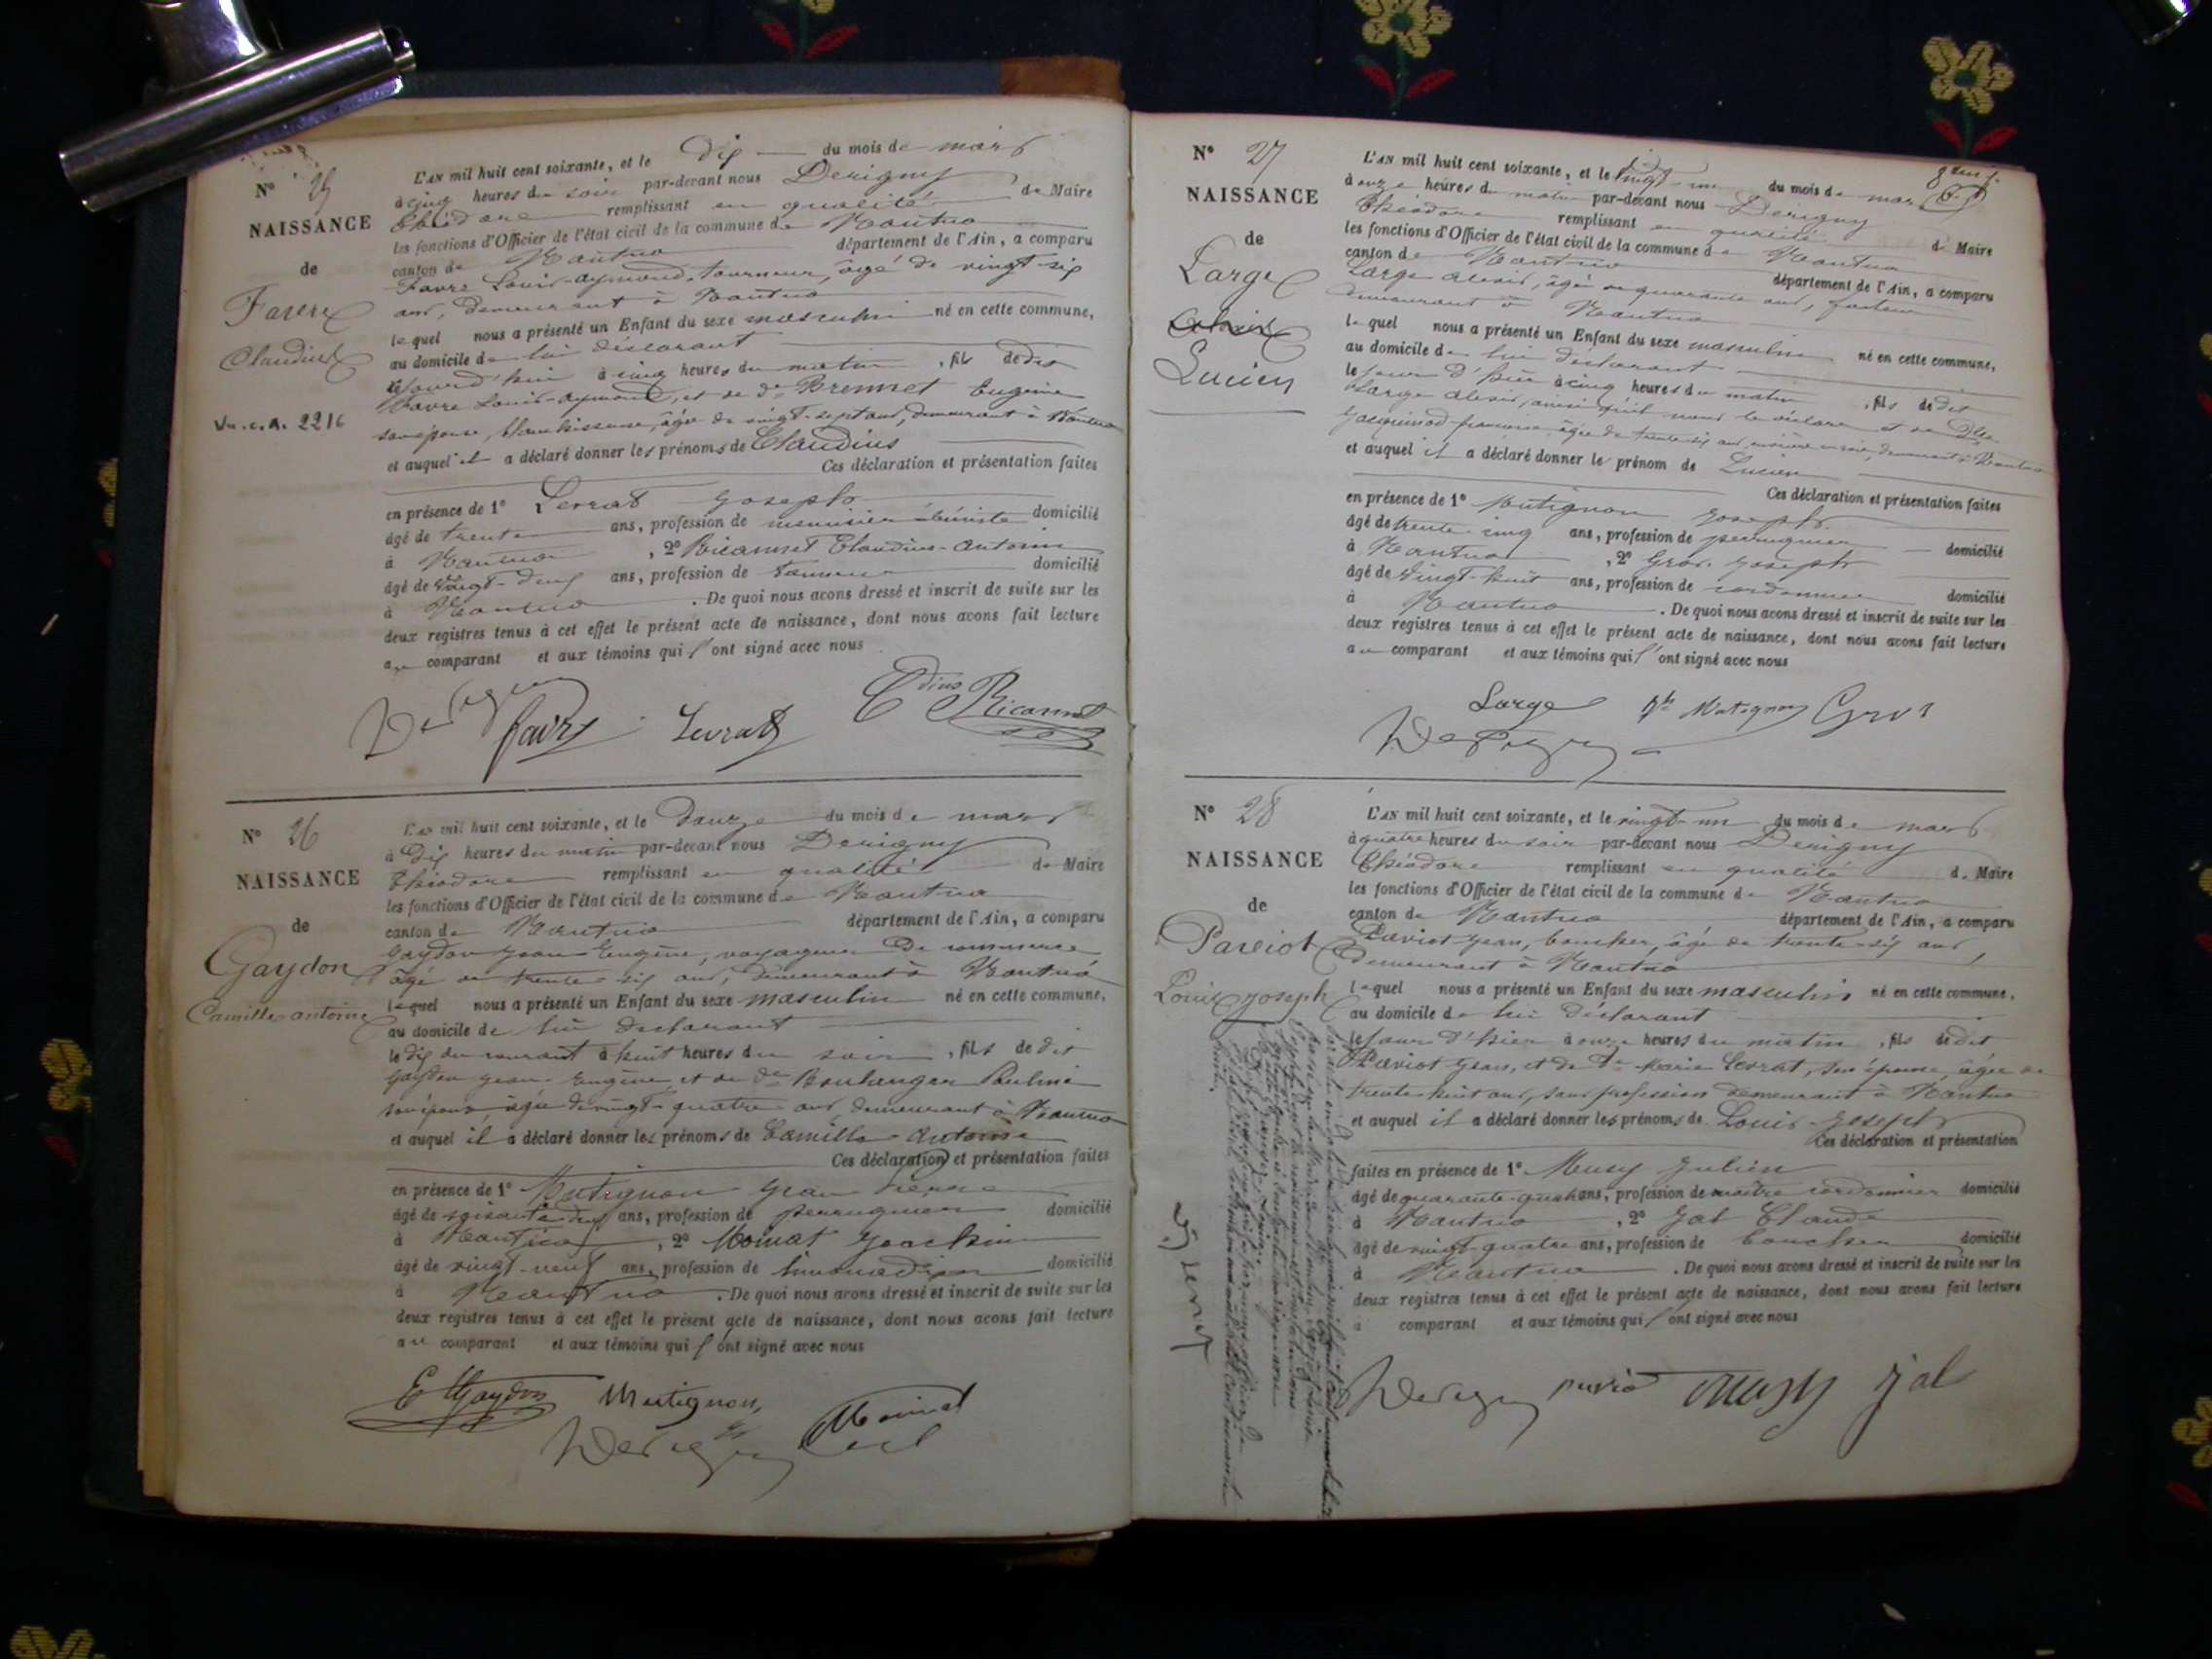 N° 25
NAISSANCE
de
Favre
Claudius
Vu. c. A. 2216
L'AN mil huit cent soixante, et le dix du mois de mars
à cinq heures du soir par-devant nous Derigny
Théodore remplissant en qualité de Maire
les fonctions d'Officier de l'état civil de la commune de Nantua
canton de Nantua département de l'Ain, a comparu
Favre Louis-aymond, tourneur, âgé de vingt-six
ans, demeurant à Nantua
lequel nous a présenté un Enfant du sexe masculin né en cette commune,
au domicile de lui déclarant
le jourd'hui à cinq heures du matin, fils de dit
Favre Louis-aymond, et de de Bremet Eugénie
son épouse, blanchisseuse, âgée de vingt-sept ans, demeurant à Nantua
et auquel il a déclaré donner les prénoms de Claudius
Ces déclaration et présentation faites
en présence de 1° Levrat Joseph
âgé de trente ans, profession de menuisier ébéniste domicilié
à Nantua, 2° Ricannet Claudius-Antonin
âgé de vingt-deux ans, profession de domicilié
à Nantua. De quoi nous avons dressé et inscrit de suite sur les
deux registres tenus à cet effet le présent acte de naissance, dont nous avons fait lecture
au comparant et aux témoins qui l'ont signé avec nous
Derigny favre Levrat Cdius Ricannet
N° 26
NAISSANCE
de
Gaydon
Camille antoine
L'AN mil huit cent soixante, et le Douze du mois de mars
à Dix heures du matin par-devant nous Derigny
Théodore remplissant en qualité de Maire
les fonctions d'Officier de l'état civil de la commune de Nantua
canton de Nantua département de l'Ain, a comparu
Gaydon Jean-Eugène, voyageur de commerce
âgé de trente-six ans, demeurant à Nantua
lequel nous a présenté un Enfant du sexe masculin né en cette commune,
au domicile de lui déclarant
le dix du courant à huit heures du soir, fils de dit
Gaydon Jean-Eugène, et de de Boulanger Pauline
son épouse, âgée de vingt-quatre ans, demeurant à Nantua
et auquel il a déclaré donner les prénoms de Camille-Antoine
Ces déclaration et présentation faites
en présence de 1° Mutignon Jean
âgé de soixante-deux ans, profession de perruquier domicilié
à Nantua, 2° Moinat Joachim
âgé de vingt-neuf ans, profession de limonadier domicilié
à Nantua. De quoi nous avons dressé et inscrit de suite sur les
deux registres tenus à cet effet le présent acte de naissance, dont nous avons fait lecture
au comparant et aux témoins qui l'ont signé avec nous
E Gaydon Mutignon Moinat
Derigny
N° 27
NAISSANCE
de
Large
Lucien
L'AN mil huit cent soixante, et le vingt-un du mois de mars
à onze heures du matin par-devant nous Derigny
Théodore remplissant en qualité de Maire
les fonctions d'Officier de l'état civil de la commune de Nantua
canton de Nantua département de l'Ain, a comparu
Large alexis, âgé de quarante ans, facteur
demeurant à Nantua
lequel nous a présenté un Enfant du sexe masculin né en cette commune,
au domicile de lui déclarant
le jour d'hui à cinq heures du matin, fils de dit
Large alexis, ainsi qu'il nous le déclare et de Dlle
Jacquinod françoise âgée de trente-six ans, demeurant à Nantua
et auquel il a déclaré donner le prénom de Lucien
Ces déclaration et présentation faites
en présence de 1° Mutignon Joseph
âgé de trente-cinq ans, profession de perruquier domicilié
à Nantua, 2° Gros Joseph
âgé de vingt-huit ans, profession de cordonnier domicilié
à Nantua. De quoi nous avons dressé et inscrit de suite sur les
deux registres tenus à cet effet le présent acte de naissance, dont nous avons fait lecture
au comparant et aux témoins qui l'ont signé avec nous
Large Jh Mutignon Gros
Derigny
N° 28
NAISSANCE
de
Paviot
Louis Joseph
L'AN mil huit cent soixante, et le vingt-un du mois de mars
à quatre heures du soir par-devant nous Derigny
Théodore remplissant en qualité de Maire
les fonctions d'Officier de l'état civil de la commune de Nantua
canton de Nantua département de l'Ain, a comparu
Paviot Jean, boucher, âgé de trente-six ans,
demeurant à Nantua
lequel nous a présenté un Enfant du sexe masculin né en cette commune,
au domicile de lui déclarant
le jour d'hier à onze heures du matin, fils de dit
Paviot Jean, et de de Marie Levrat, son épouse, âgée de
trente-huit ans, sans profession demeurant à Nantua
et auquel il a déclaré donner les prénoms de Louis-Joseph
Ces déclaration et présentation
faites en présence de 1° Musy Julien
âgé de quarante-quatre ans, profession de maître cordonnier domicilié
à Nantua, 2° Jal Claude
âgé de vingt-quatre ans, profession de boucher domicilié
à Nantua. De quoi nous avons dressé et inscrit de suite sur les
deux registres tenus à cet effet le présent acte de naissance, dont nous avons fait lecture
à comparant et aux témoins qui l'ont signé avec nous
Derigny paviot musy jal